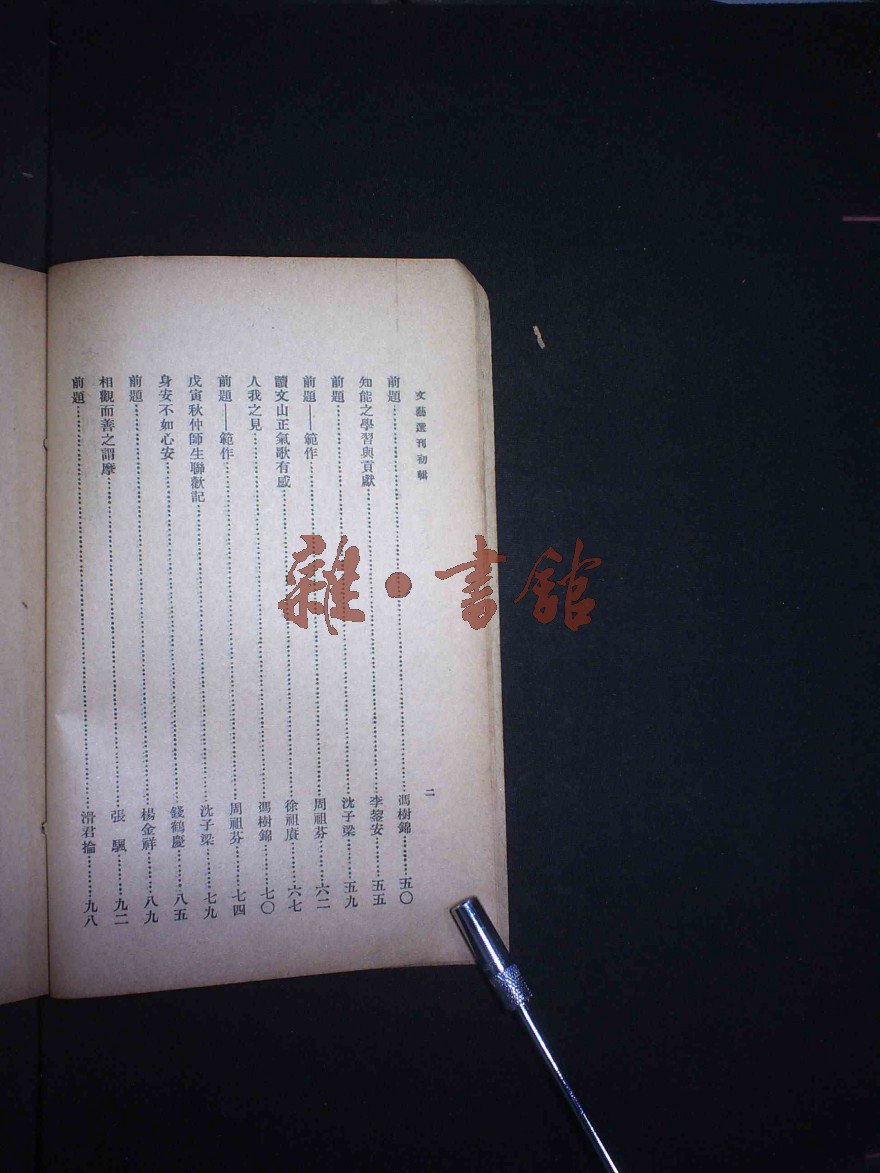 文藝選刊初輯 二
前題 馮樹錦 五〇
知能之學習與貢獻 李黎安 五五
前題 沈子梁 五九
前題——範作 周祖芬 六二
讀文山正氣歌有感 徐祖賡 六七
人我之見 馮樹錦 七〇
前題——範作 周祖芬 七四
戊寅秋仲師生聯歡記 沈子梁 七九
身安不如心安 錢鶴慶 八五
前題 楊金祥 八九
相觀而善之謂摩 張颿 九二
前題 滑君掄 九八
雜·書館